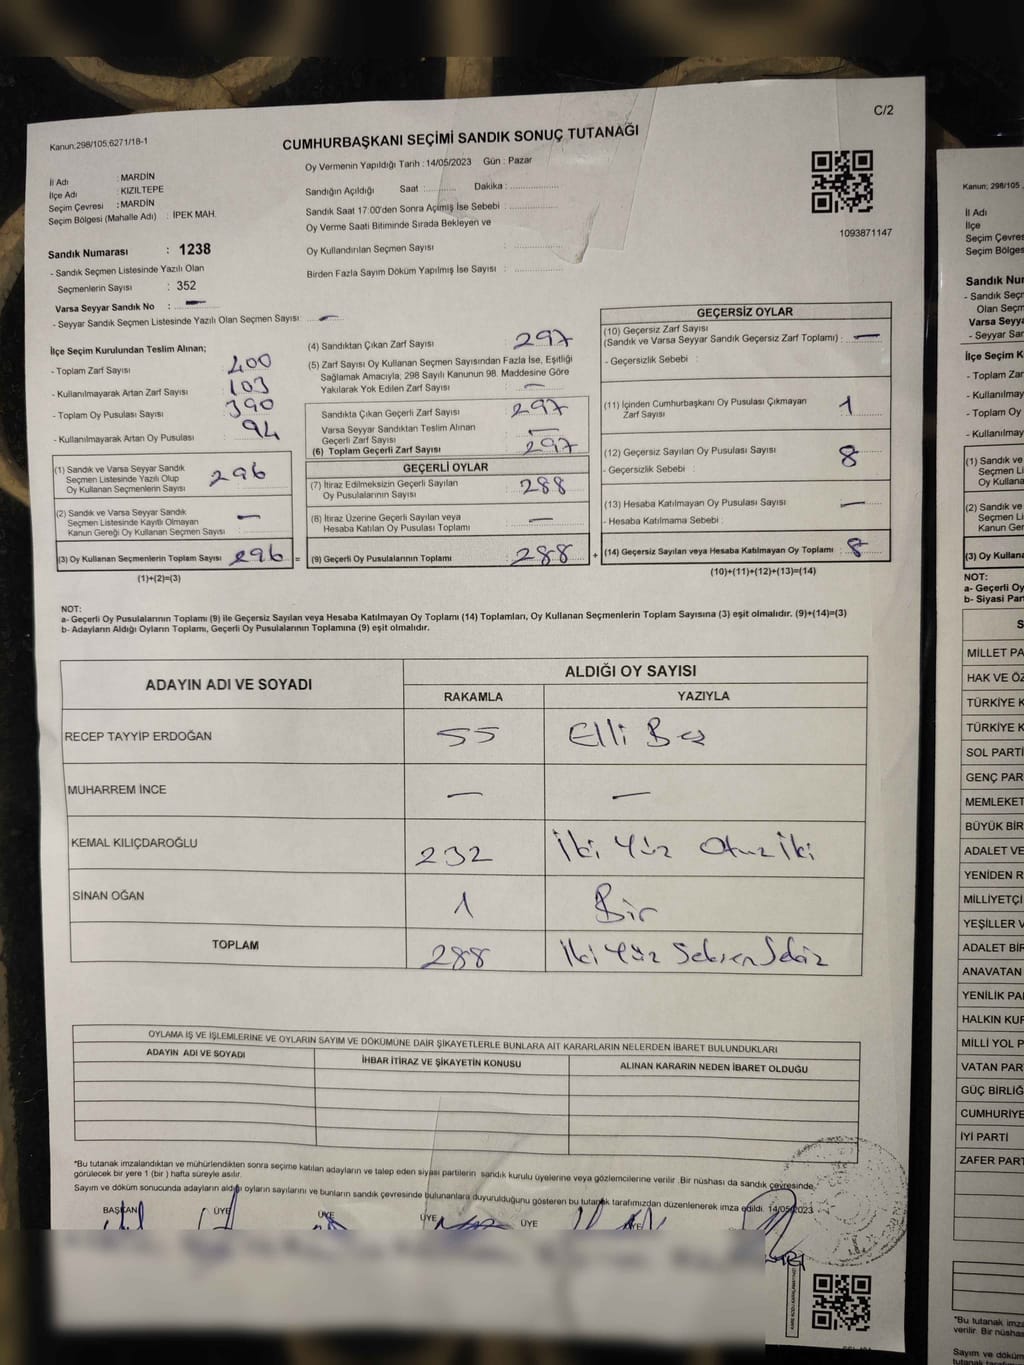 C/2
Kanun:298/105;6271/18-1
CUMHURBAŞKANI SEÇİMİ SANDIK SONUÇ TUTANAĞI
Oy Vermenin Yapıldığı Tarih : 14/05/2023 Gün : Pazar
İl Adı : MARDİN
İlçe Adı : KIZILTEPE
Seçim Çevresi : MARDİN
Seçim Bölgesi (Mahalle Adı) : İPEK MAH.
Sandığın Açıldığı Saat :........... Dakika :..................
Sandık Saat 17:00'den Sonra Açılmış İse Sebebi :..................
Oy Verme Saati Bitiminde Sırada Bekleyen ve
Oy Kullandırılan Seçmen Sayısı :..................
Birden Fazla Sayım Döküm Yapılmış İse Sayısı :..................
1093871147
Sandık Numarası : 1238
- Sandık Seçmen Listesinde Yazılı Olan
Seçmenlerin Sayısı : 352
Varsa Seyyar Sandık No : —
- Seyyar Sandık Seçmen Listesinde Yazılı Olan Seçmen Sayısı: —
İlçe Seçim Kurulundan Teslim Alınan;
- Toplam Zarf Sayısı : 400
- Kullanılmayarak Artan Zarf Sayısı : 103
- Toplam Oy Pusulası Sayısı : 390
- Kullanılmayarak Artan Oy Pusulası : 94
(1) Sandık ve Varsa Seyyar Sandık
Seçmen Listesinde Yazılı Olup
Oy Kullanan Seçmenlerin Sayısı : 296
(2) Sandık ve Varsa Seyyar Sandık
Seçmen Listesinde Kayıtlı Olmayan
Kanun Gereği Oy Kullanan Seçmen Sayısı : —
(3) Oy Kullanan Seçmenlerin Toplam Sayısı : 296 =
(1)+(2)=(3)
(4) Sandıktan Çıkan Zarf Sayısı : 297
(5) Zarf Sayısı Oy Kullanan Seçmen Sayısından Fazla İse, Eşitliği
Sağlamak Amacıyla; 298 Sayılı Kanunun 98. Maddesine Göre
Yakılarak Yok Edilen Zarf Sayısı : —
Sandıkta Çıkan Geçerli Zarf Sayısı : 297
Varsa Seyyar Sandıktan Teslim Alınan
Geçerli Zarf Sayısı : —
(6) Toplam Geçerli Zarf Sayısı : 297
GEÇERLİ OYLAR
(7) İtiraz Edilmeksizin Geçerli Sayılan
Oy Pusulasının Sayısı : 288
(8) İtiraz Üzerine Geçerli Sayılan veya
Hesaba Katılan Oy Pusulası Toplamı : —
(9) Geçerli Oy Pusulalarının Toplamı : 288 +
GEÇERSİZ OYLAR
(10) Geçersiz Zarf Sayısı
(Sandık ve Varsa Seyyar Sandık Geçersiz Zarf Toplamı) : —
- Geçersizlik Sebebi :
(11) İçinden Cumhurbaşkanı Oy Pusulası Çıkmayan
Zarf Sayısı : 1
(12) Geçersiz Sayılan Oy Pusulası Sayısı : 8
- Geçersizlik Sebebi :
(13) Hesaba Katılmayan Oy Pusulası Sayısı : —
- Hesaba Katılmama Sebebi :
(14) Geçersiz Sayılan veya Hesaba Katılmayan Oy Toplamı : 8
(10)+(11)+(12)+(13)=(14)
NOT:
a- Geçerli Oy Pusulalarının Toplamı (9) ile Geçersiz Sayılan veya Hesaba Katılmayan Oy Toplamı (14) Toplamları, Oy Kullanan Seçmenlerin Toplam Sayısına (3) eşit olmalıdır. (9)+(14)=(3)
b- Adayların Aldığı Oyların Toplamı, Geçerli Oy Pusulalarının Toplamına (9) eşit olmalıdır.
ADAYIN ADI VE SOYADI ALDIĞI OY SAYISI
RAKAMLA YAZIYLA
RECEP TAYYİP ERDOĞAN 55 Elli Beş
MUHARREM İNCE — —
KEMAL KILIÇDAROĞLU 232 İki Yüz Otuz İki
SİNAN OĞAN 1 Bir
TOPLAM 288 İki Yüz Seksen Sekiz
OYLAMA İŞ VE İŞLEMLERİNE VE OYLARIN SAYIM VE DÖKÜMÜNE DAİR ŞİKAYETLERLE BUNLARA AİT KARARLARIN NELERDEN İBARET BULUNDUKLARI
ADAYIN ADI VE SOYADI İHBAR İTİRAZ VE ŞİKAYETİN KONUSU ALINAN KARARIN NEDEN İBARET OLDUĞU
*Bu tutanak imzalandıktan ve mühürlendikten sonra seçime katılan adayların ve talep eden siyasi partilerin sandık kurulu üyelerine veya gözlemcilerine verilir .Bir nüshası da sandık çevresinde,
görülecek bir yere 1 (bir ) hafta süreyle asılır.
Sayım ve döküm sonucunda adayların aldığı oyların sayılarını ve bunların sandık çevresinde bulunanlara duyurulduğunu gösteren bu tutanak tarafımızdan düzenlenerek imza edildi. 14/05/2023
BAŞKAN ÜYE ÜYE ÜYE ÜYE ÜYE
Kanun; 298/105
İl Adı
İlçe
Seçim Çevres
Seçim Bölges
Sandık Nu
- Sandık Seçn
Olan Seçm
Varsa Seyya
- Seyyar San
İlçe Seçim K
- Toplam Zar
- Kullanılmay
- Toplam Oy
- Kullanılmay
(1) Sandık ve
Seçmen Li
Oy Kullan
(2) Sandık ve
Seçmen Li
Kanun Ger
(3) Oy Kullana
NOT:
a- Geçerli Oy
b- Siyasi Part
S
MİLLET PA
HAK VE ÖZ
TÜRKİYE K
TÜRKİYE K
SOL PARTİ
GENÇ PAR
MEMLEKET
BÜYÜK BİR
ADALET VE
YENİDEN R
MİLLİYETÇİ
YEŞİLLER V
ADALET BİR
ANAVATAN
YENİLİK PA
HALKIN KUR
MİLLİ YOL P
VATAN PAR
GÜÇ BİRLİĞ
CUMHURİYE
İYİ PARTİ
ZAFER PART
*Bu tutanak imza
verilir. Bir nüshas
Sayım ve döküm
tutanak tarafımız